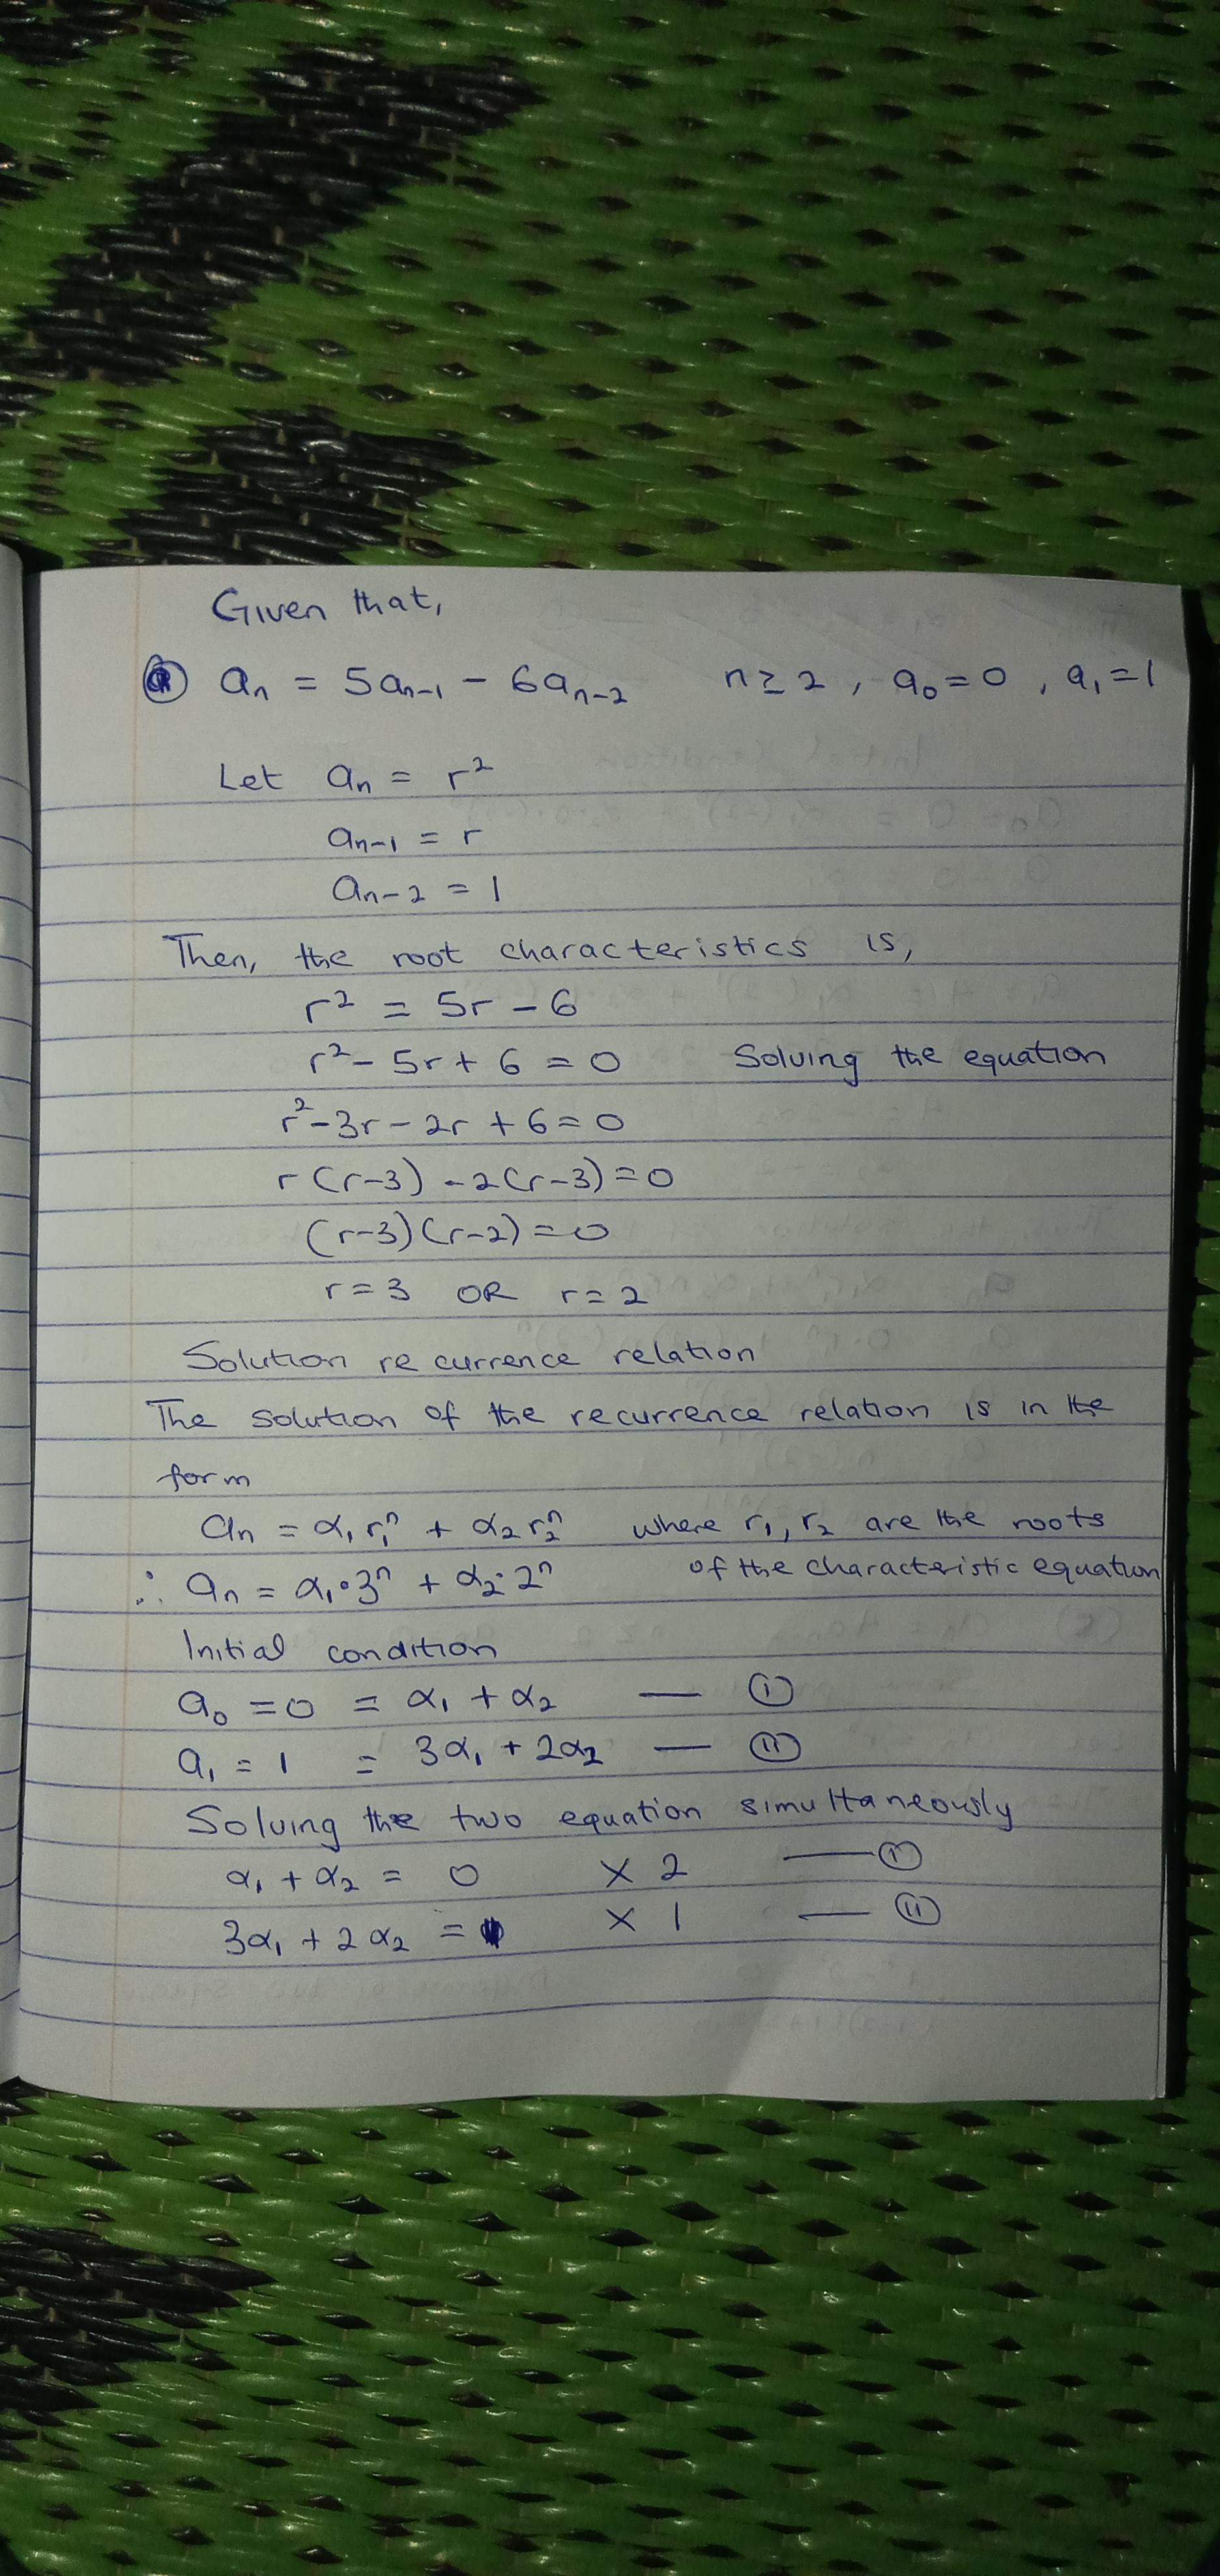 Given that,
(a) aₙ = 5aₙ₋₁ − 6aₙ₋₂ n ≥ 2, a₀ = 0, a₁ = 1
Let aₙ = r²
aₙ₋₁ = r
aₙ₋₂ = 1
Then, the root characteristics is,
r² = 5r − 6
r² − 5r + 6 = 0 Solving the equation
r² − 3r − 2r + 6 = 0
r(r−3) − 2(r−3) = 0
(r−3)(r−2) = 0
r = 3 OR r = 2
Solution recurrence relation
The solution of the recurrence relation is in the
form
aₙ = α₁r₁ⁿ + α₂r₂ⁿ where r₁, r₂ are the roots
of the characteristic equation
∴ aₙ = α₁·3ⁿ + α₂·2ⁿ
Initial condition
a₀ = 0 = α₁ + α₂ — (i)
a₁ = 1 = 3α₁ + 2α₂ — (ii)
Solving the two equation simultaneously
α₁ + α₂ = 0 × 2 — (i)
3α₁ + 2α₂ = × 1 — (ii)